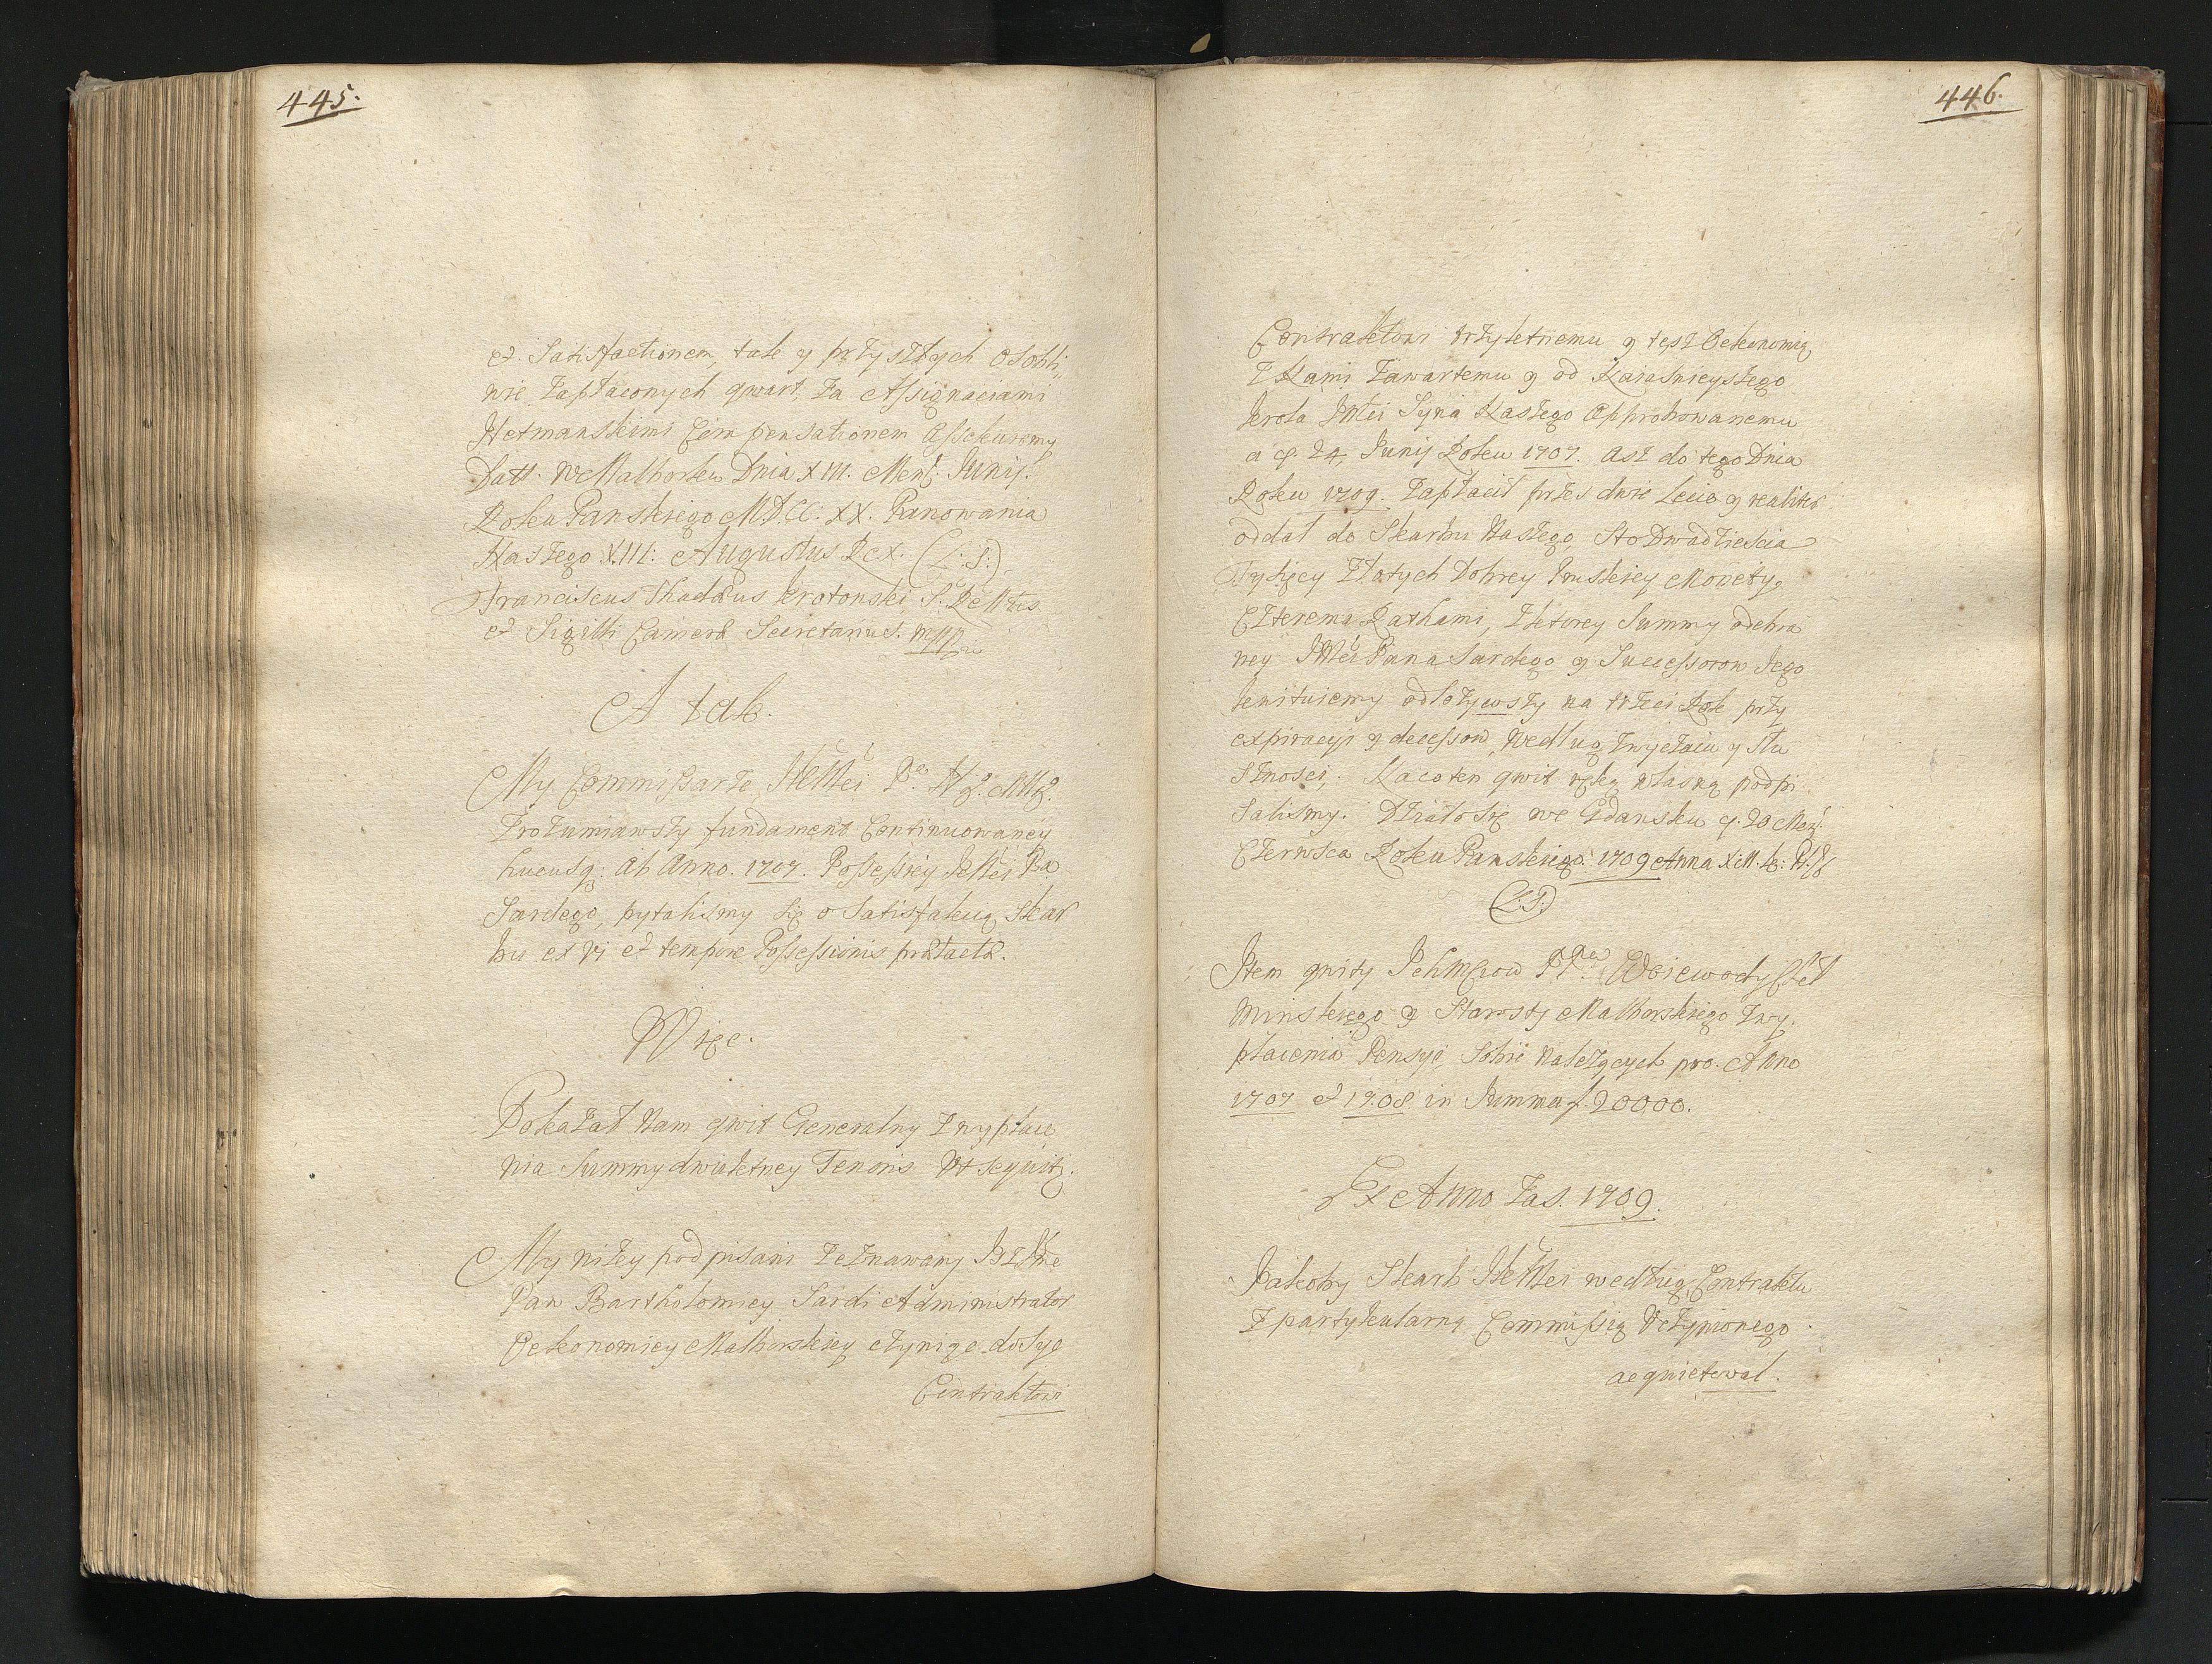 445.
et Satisfactionem, tak y przyszłych osobli,,
wie zapłaconych qwart, za Assignaciami
Hetmanskimi Compensationem Assekuiemy
Datt. w Malborku Dnia XIII. Men. Junij.
Roku Panskiego M.D.CC. XX. Panowania
Naszego XXIII: Augustus Rex. (L. S.)
Franciscus Thadæus Krotonski S. R. Mtis
et Sigilli Cameræ Secretarius. mpp
A tak.
My Commissarze JKMci
Zrozumiawszy fundament Continuowaney
hucusq; ab Anno. 1707. Possessiey JeMci Pa
Sardego, pytalismy się o Satisfakcią Skar
bu ex vi et tempore Possessionis prætactæ.
Więc.
Pokazał Nam qwit Generalny z wypłace
nia Summy dwuletney Tenoris Vt sequitr.
My niżey podpisani zeznawamy Jsz Jme
Pan Bartholomiey Sardi Administrator
Oekonomiey Malborskiey czyniąc dosyc
Contraktowi
446.
Contraktowi trzyletniemu y tęsz Oekonomią
Z Nami zawartemu y od Naiasnieyszego
Krola JMci Syna Naszego Approbowanemu
a d. 24, Junij Roku 1707. asz do tego Dnia
Roku 1709. zapłacił przes dwie Lecie y realiter
oddał do Skarbu Naszego, Sto Dwadziescia
Tysięcy Złotych Dobrey Pruskiey Monety,
Czterema Rathami, z ktorey Summy odebra
ney JMci Pana Sardego y Successorow Jego
kwituiemy odłożywszy na trzeci Rok przy
expiracyi y decessow, według zwyczaiu y słu
sznosci; Na co ten qwit ręką własną podpi
salismy. Działo się we Gdansku d. 20 Men.
Czerwca Roku Panskiego. 1709 Anna
(L.S.)
Item qwity Woiewody Chel
minskiego y Starosty Malborskiego z wy,
płacenia Pensyi, Sobie należących pro. Anno
1707 et 1708 in Summa f. 20000.
Ex Anno zas. 1709.
Jakoby Skarb JKMci według Contraktu
z partykularną Commissią Vczynionego
acquietował.